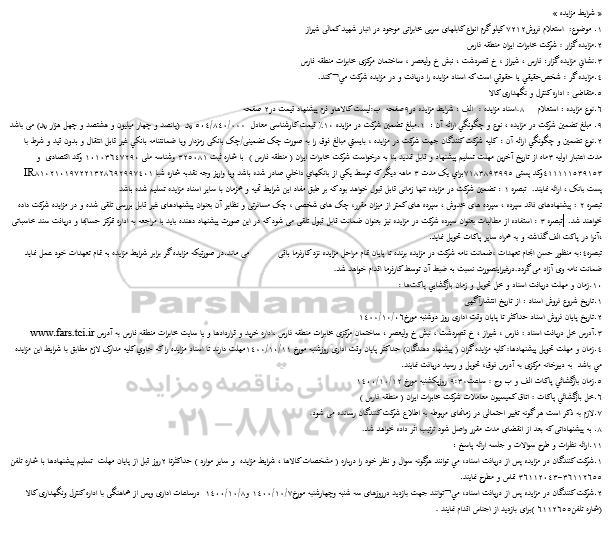 « شرایط مزایده »
۱. موضوع: استعلام فروش ۷۲۱۲ کیلو گرم انواع کابلهای سربی مخابراتی موجود در انبار شهید کمالی شیراز
۲. مزایده گزار : شرکت مخابرات ایران منطقه فارس
۳. نشاني مزایده گزار: فارس ، شیراز ، خ قصردشت ، نبش خ ولیعصر ، ساختمان مرکزی مخابرات منطقه فارس
۴. مزایده گر : شخص حقیقي یا حقوقي است که اسناد مزایده را دریافت و در مزایده شرکت مي¬کند.
۵. متقاضی : اداره کنترل و نگهداری کالا
۶. نوع مزایده : استعلام ۸. اسناد مزایده : الف : شرایط مزایده در ۹ صفحه ب: لیست کالاها و فرم پیشنهاد قیمت در ۲ صفحه
۹. مبلغ تضمین شرکت در مزایده ، نوع و چگونگي ارائه آن : ۱. مبلغ تضمین شرکت در مزایده ۱۰٪ قیمت کارشناسی معادل ۵۰۴/۸۴۰/۰۰۰ ریال (پانصد و چهار میلیون و هشتصد و چهل هزار ریال) می باشد
۲. نوع تضمین و چگونگي ارائه آن : کلیه شرکت کنندگان جهت شرکت در مزایده ، بایستي مبالغ فوق را به صورت چک تضمیني/چک بانکی رمزدار و یا ضمانتنامه بانکي غیر قابل انتقال و بدون قید و شرط با
مدت اعتبار اولیه ۳ ماه از تاریخ آخرین مهلت تسلیم پیشنهاد و قابل تمدید بنا به درخواست شرکت مخابرات ایران ( منطقه فارس ) با شماره ثبت ۳۲۵۰۸۱ وشناسه ملی ۱۰۱۰۳۶۴۷۲۹۰ وکد اقتصادی و
۴۱۱۱۱۵۳۹۱۵۳ وکد پستی ۷۱۸۳۸۹۳۹۹۵ برای یک مدت ۳ ماهه دیگر که توسط یکي از بانکهاي داخلي صادر شده باشد ویا واریز وجه نقد به شماره شبا IR۸۱۰۲۱۰۱۹۷۲۲۱۳۲۸۶۲۹۲۹۹۷۴۰۱
پست بانک ، ارائه نمایند. تبصره ۱ : تضمین شرکت در مزایده تنها زمانی قابل قبول خواهد بود که بر طبق مفاد این شرایط تهیه و همزمان با سایر اسناد مزایده تسلیم شده باشد.
تبصره ۲ : پیشنهادهاي فاقد سپرده ، سپرده هاي مخدوش ، سپرده هاي کمتر از میزان مقرر، چک هاي شخصي ، چک مسافرتي و نظایر آن بعنوان پیشنهادهاي غیر قابل بررسي تلقي شده و در مزایده شرکت داده
خواهند شد. تبصره ۳ : استفاده از مطالبات بعنوان سپرده شرکت در مزایده نیز بعنوان ضمانت قابل قبول تلقي می شود که در این صورت پیشنهاد دهنده باید با مراجعه به اداره مرکز حسابها و دریافت سند حسابداری
،آنرا در پاکت الف گذاشته و به همراه سایر پاکات تحویل نماید.
تبصره۴:به منظور حسن انجام تعهدات ،ضمانت نامه شرکت در مزایده برنده تا پایان تمام مراحل مزایده نزد کارفرما باقی می ماند.در صورتیکه مزایده گر برابر شرایط مزایده به تمام تعهدات خود عمل نماید
ضمانت نامه وی آزاد می گردد.درغیراینصورت نسبت به ضبط آن توسط کارفرما اقدام خواهد شد.
۱۰. زمان و مهلت دریافت اسناد و محل تحویل و زمان بازگشایي پاکت‌ها :
۱. تاریخ شروع فروش اسناد : از تاریخ انتشار آگهی
۲. تاریخ پایان فروش اسناد حداکثر تا پایان وقت اداری روز دوشنبه مورخ ۱۴۰۰/۱۰/۰۶
۳. آدرس محل دریافت اسناد : فارس ، شیراز ، خ قصردشت ، نبش خ ولیعصر ، ساختمان مرکزی مخابرات منطقه فارس ،اداره خرید و قراردادها و یا سایت مخابرات منطقه فارس به آدرس www.fars.tci.ir
۴. زمان و مهلت تحویل پیشنهادها: کلیه مزایده گران ( پیشنهاد دهندگان) حداکثر پایان وقت اداری روز شنبه مورخ ۱۴۰۰/۱۰/۱۱ مهلت دارند تا اسناد مزایده را که حاوي کلیه مدارک لازم مطابق با شرایط این مزایده
مي باشد به دبیرخانه مرکزی به آدرس فوق، تحویل و رسید دریافت نمایند.
۵. زمان بازگشائي پاکات الف و ب و ج : ساعت ۹:۳۰ روز یکشنبه مورخ ۱۴۰۰/۱۰/۱۲
۶. محل بازگشائي پاکات : اتاق کمیسیون معاملات شرکت مخابرات ایران ( منطقه فارس )
۷. لازم به ذکر است هر گونه تغییر احتمالي در زمانهای مربوطه به اطلاع شرکت کنندگان رسانده مي شود.
۸. به پیشنهاداتي که بعد از انقضای مدت مقرر واصل شود ترتیب اثر داده نخواهد شد.
۱۱. ارائه نظرات و طرح سوالات و جلسه ارائه پاسخ :
۱. شرکت کنندگان در مزایده پس از دریافت اسناد، مي توانند هرگونه سوال و نظر خود را درباره ( مشخصات کالاها ، شرایط مزایده و سایر موارد ) حداکثرتا ۲ روز قبل از پایان مهلت تسلیم پیشنهادها با شماره تلفن
۳۶۱۱۲۶۵۵-۳۶۱۱۲۰۴۳ تماس و مطرح نمایند.
۲. شرکت کنندگان در مزایده پس از دریافت اسناد، مي¬توانند جهت بازدید درروزهای سه شنبه وچهارشنبه مورخ ۱۴۰۰/۱۰/۷ و ۱۴۰۰/۱۰/۸ درساعات اداری وپس از هماهنگی با اداره کنترل ونگهداری کالا
(شماره تلفن ۶۱۱۲۶۵۵) برای بازدید از اجناس اقدام نمایند .
ParsNamadData
پایگاه اطلاع رسانی مناقصه و مزایده
۰۲۱-۸۸۳۴۹۶۷۰